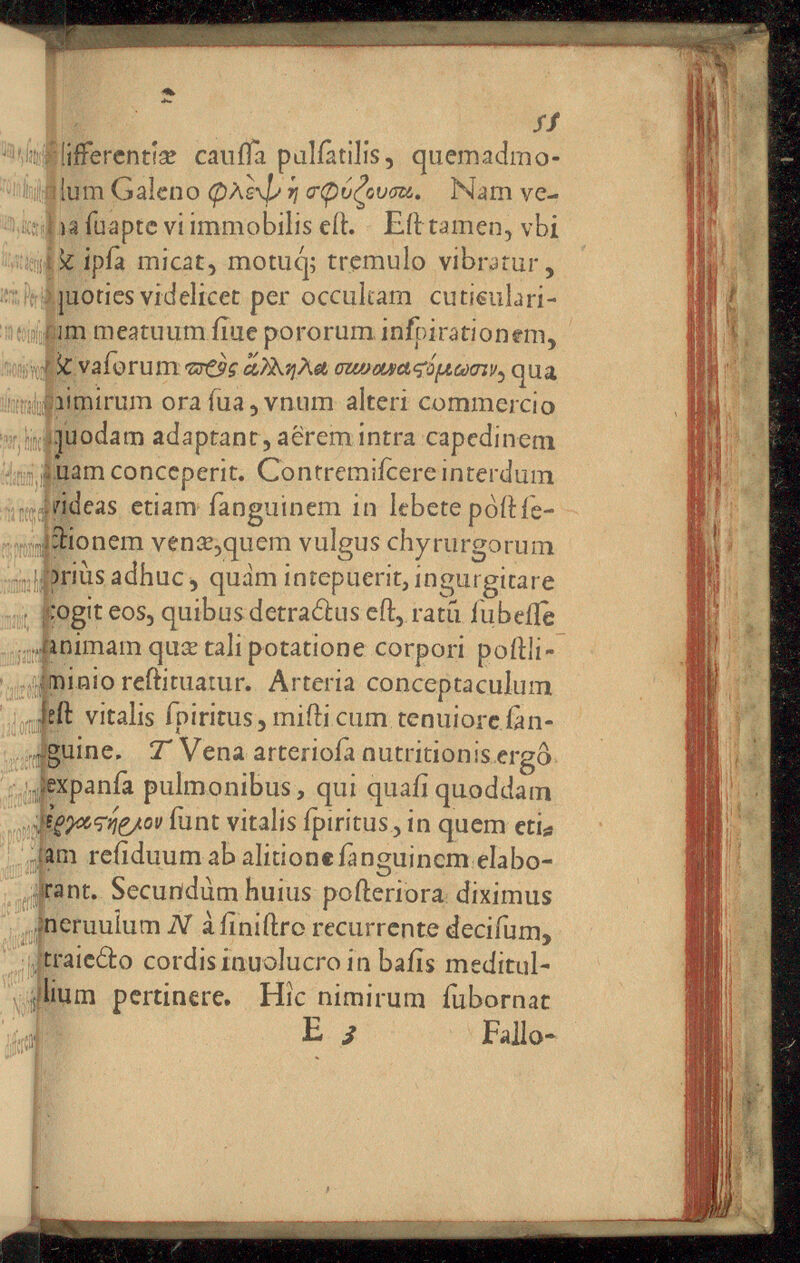 55
differentiæ cauſſa pulſatilis, quemadmo-
dum Galeno φλὲψ ἡ σφύζουσα. Nam ve-
na ſuapte vi immobilis eſt. Eſt tamen, vbi
& ipſa micat, motuq́; tremulo vibratur,
quoties videlicet per occultam cuticulari-
um meatuum ſiue pororum inſpirationem,
& vaſorum πρὸς ἄλληλα συναναστόμωσιν, qua
nimirum ora ſua, vnum alteri commercio
quodam adaptant, aërem intra capedinem
ſuam conceperit. Contremiſcere interdum
videas etiam ſanguinem in lebete pòſt ſe-
ctionem venæ, quem vulgus chyrurgorum
priùs adhuc, quàm intepuerit, ingurgitare
cogit eos, quibus detractus eſt, ratū ſubeſſe
animam quæ tali potatione corpori poſtli-
minio reſtituatur. Arteria conceptaculum
eſt vitalis ſpiritus, miſti cum tenuiore ſan-
guine. T Vena arterioſa nutritionis ergò
expanſa pulmonibus, qui quaſi quoddam
ἐργαστήριον ſunt vitalis ſpiritus, in quem etiã
jam reſiduum ab alitione ſanguinem elabo-
rant. Secundùm huius poſteriora diximus
neruulum N à ſiniſtro recurrente deciſum,
traiecto cordis inuolucro in baſis meditul-
lium pertinere. Hic nimirum ſubornat
E 3 Fallo-